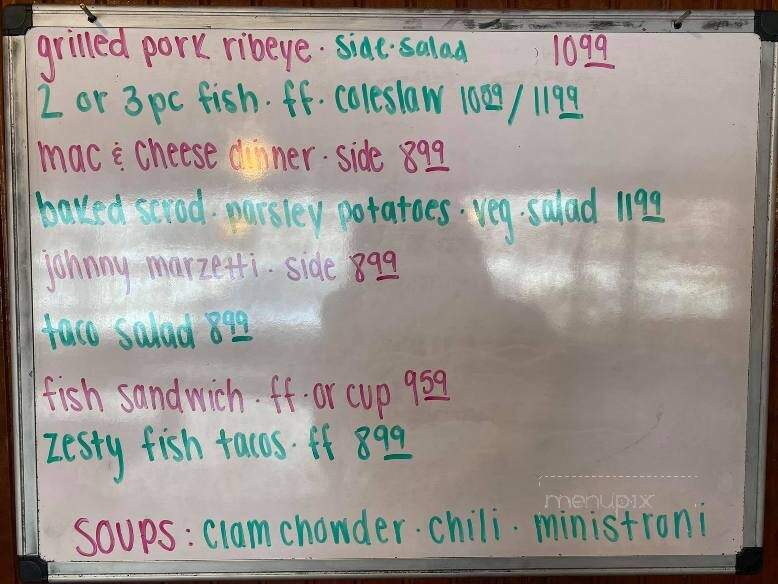 grilled pork ribeye · side · salad 10 99
2 or 3 pc fish · ff · coleslaw 10 09 / 11 99
mac & cheese dinner · side 8 99
baked scrod · parsley potatoes · veg · salad 11 99
johnny marzetti · side 8 99
taco salad 8 99
fish sandwich · ff · or cup 9 59
zesty fish tacos · ff 8 99
menupix
SOUPS : clam chowder · chili · ministroni